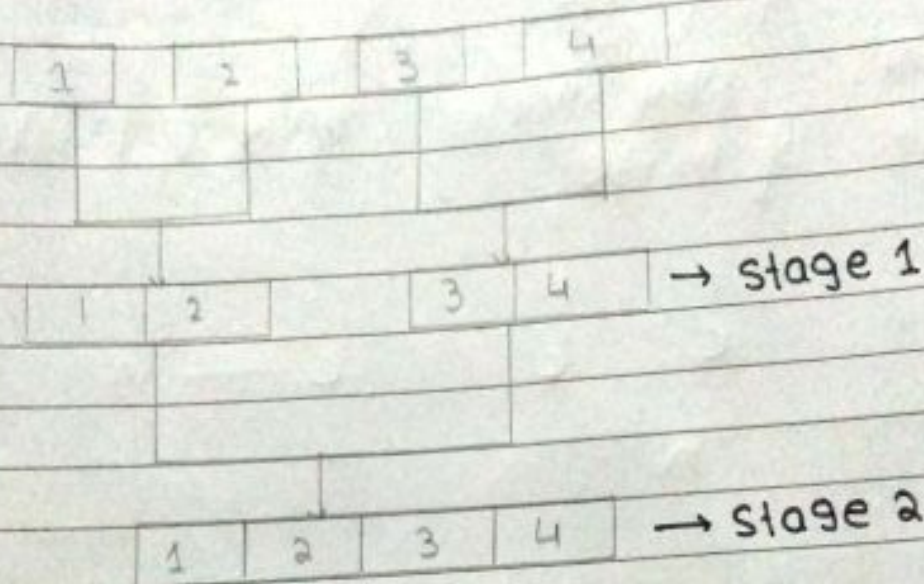 1 2 3 4
1 2 3 4 → stage 1
1 2 3 4 → stage 2